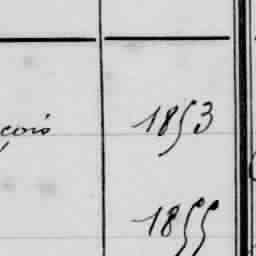 çois 1853
1855